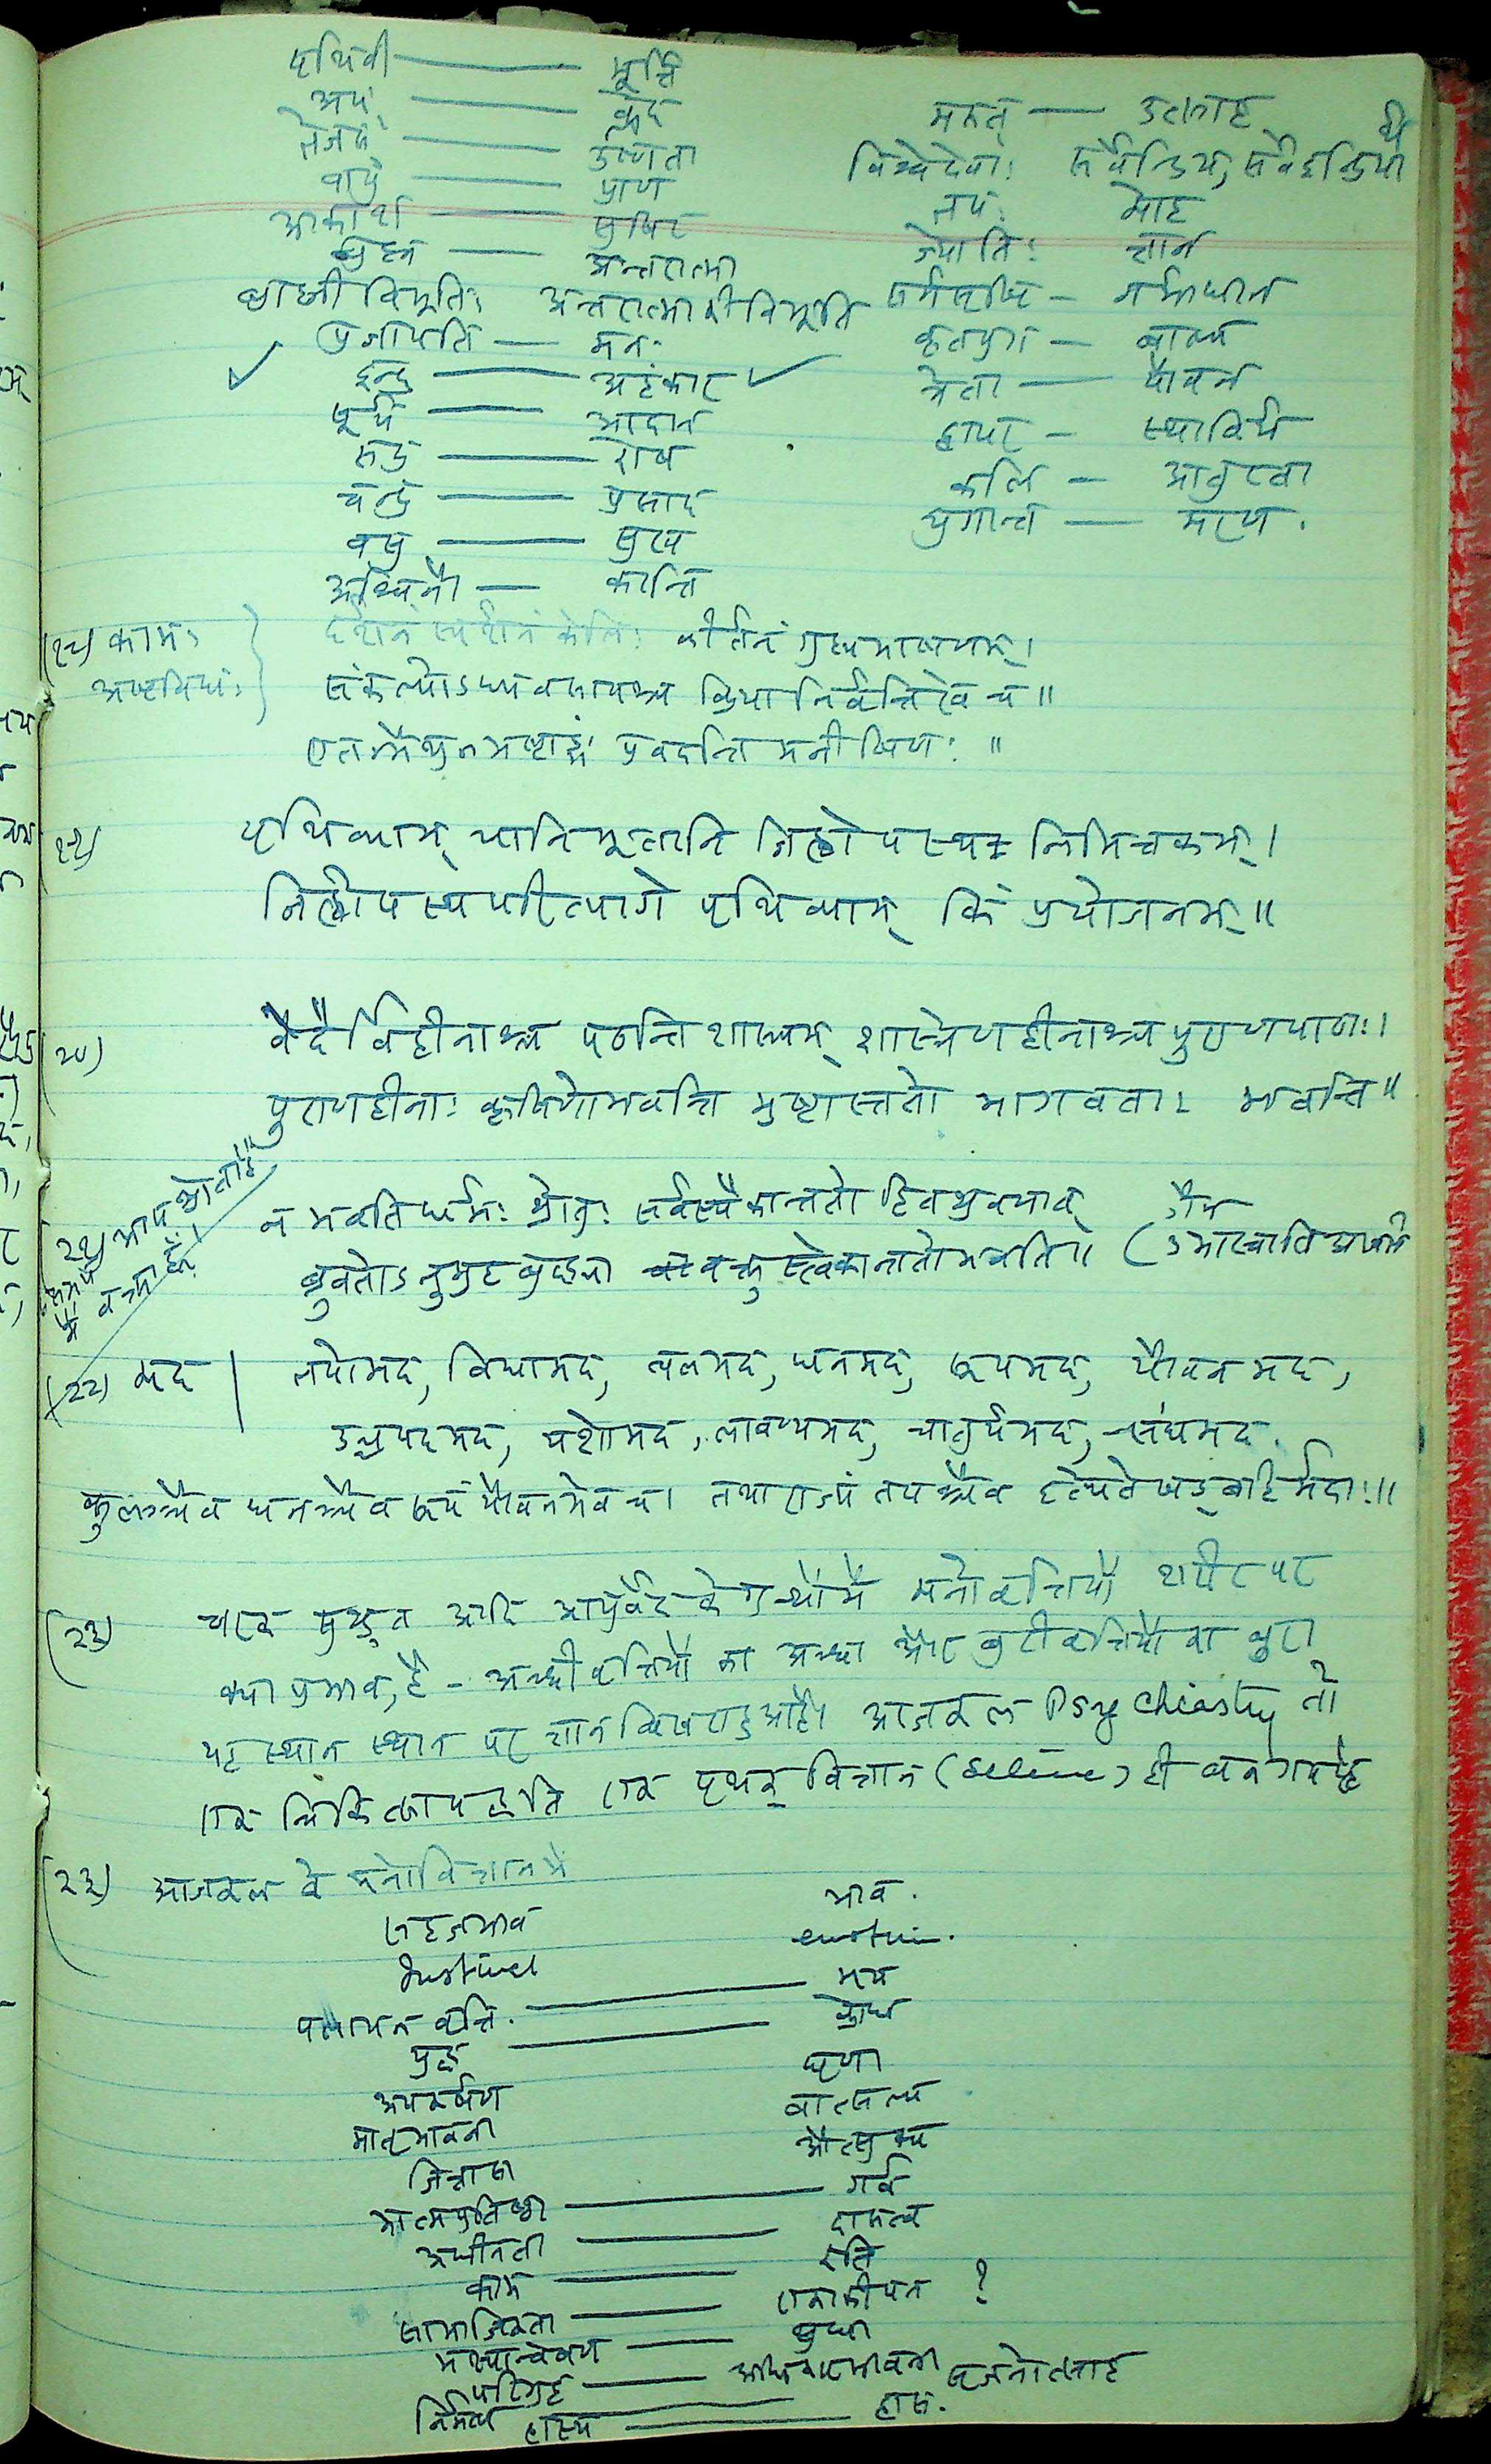 पृथिवी — मूर्ति
अप् — क्लेद
तेजस् — उष्णता
वायु — प्राण
आकाश — सुषिर
ब्रह्म — अन्तरात्मा
ब्राह्मी विभूतिः अन्तरात्मा की विभूति
प्रजापति — मनः
✓ इन्द्र — अहंकार ✓
सूर्य — आदान
रुद्र — रोष
चन्द्र — प्रसाद
वसु — सुख
अश्विनौ — कान्ति
मरुत् — उत्साह
विश्वेदेवाः सर्वेन्द्रिय, सर्वइन्द्रियार्थ
तमः मोह
ज्योतिः ज्ञान
सर्गसृष्टि — गर्भाधान
कृतयुग — बाल्य
त्रेता — यौवन
द्वापर — स्थाविर्य
कलि — आतुरता
युगान्त — मरण.
(१८) कामः अष्टविधः
दर्शनं स्पर्शनं केलिः कीर्तनं गुह्यभाषणम्।
संकल्पोऽध्यवसायश्च क्रियानिर्वृत्तिरेव च॥
एतन्मैथुनमष्टाङ्गं प्रवदन्ति मनीषिणः॥
१९) पृथिव्याम् यानि भूतानि जिह्वोपस्थ निमित्तकम्।
जिह्वोपस्थ परित्यागे पृथिव्याम् किं प्रयोजनम्॥
(२०) वेदैर्विहीनाश्च पठन्ति शास्त्रम् शास्त्रेण हीनाश्च पुराणपाठाः।
पुराणहीनाः कृषिणो भवन्ति भ्रष्टास्ततो भागवता भवन्ति॥
२१) आप श्रोता हैं॥
मैं वक्ता हूँ।
न भवति धर्मः श्रोतुः सर्वस्यैकान्ततो हितश्रवणात्
ब्रुवतोऽनुग्रहबुद्ध्या वक्तुस्त्वेकान्ततो भवति॥ (जैन उमास्वाति
(२२) मद | तपोमद, विद्यामद, बलमद, धनमद, रूपमद, यौवनमद,
उच्चपदमद, यशोमद, लावण्यमद, चातुर्यमद, संघमद.
कुलञ्चैव धनञ्चैव रूपं यौवनमेव च। तथा राज्यं तपश्चैव इत्येते षड् बहिर्मदाः॥
(२३) चरक सुश्रुत आदि आयुर्वेद के ग्रन्थों में मनोवृत्तियों शरीर पर
क्या प्रभाव, है – अच्छी वृत्तियों का अच्छा और बुरी वृत्तियों का बुरा
यह स्थान स्थान पर ज्ञान बिखरा हुआ है। आजकल Psychiastry तो
एक चिकित्सापद्धति एक पृथक् विज्ञान (Science) ही बन गया है
(२३) आजकल के मनोविज्ञान में
सहजभाव भाव.
Instinct emotion.
पलायन वृत्ति. — भय
युद्ध — क्रोध
अपकर्षण घृणा
मातृभावना वात्सल्य
जिज्ञासा औत्सुक्य
आत्मप्रतिष्ठा — गर्व
अधीनता — दासत्व
काम — रति
सामाजिकता — एकाकीपन ?
भक्ष्यान्वेषण — क्षुधा
परिग्रह — अधिकारभावना
निर्माण — सृजनोत्साह
हास्य — हास.